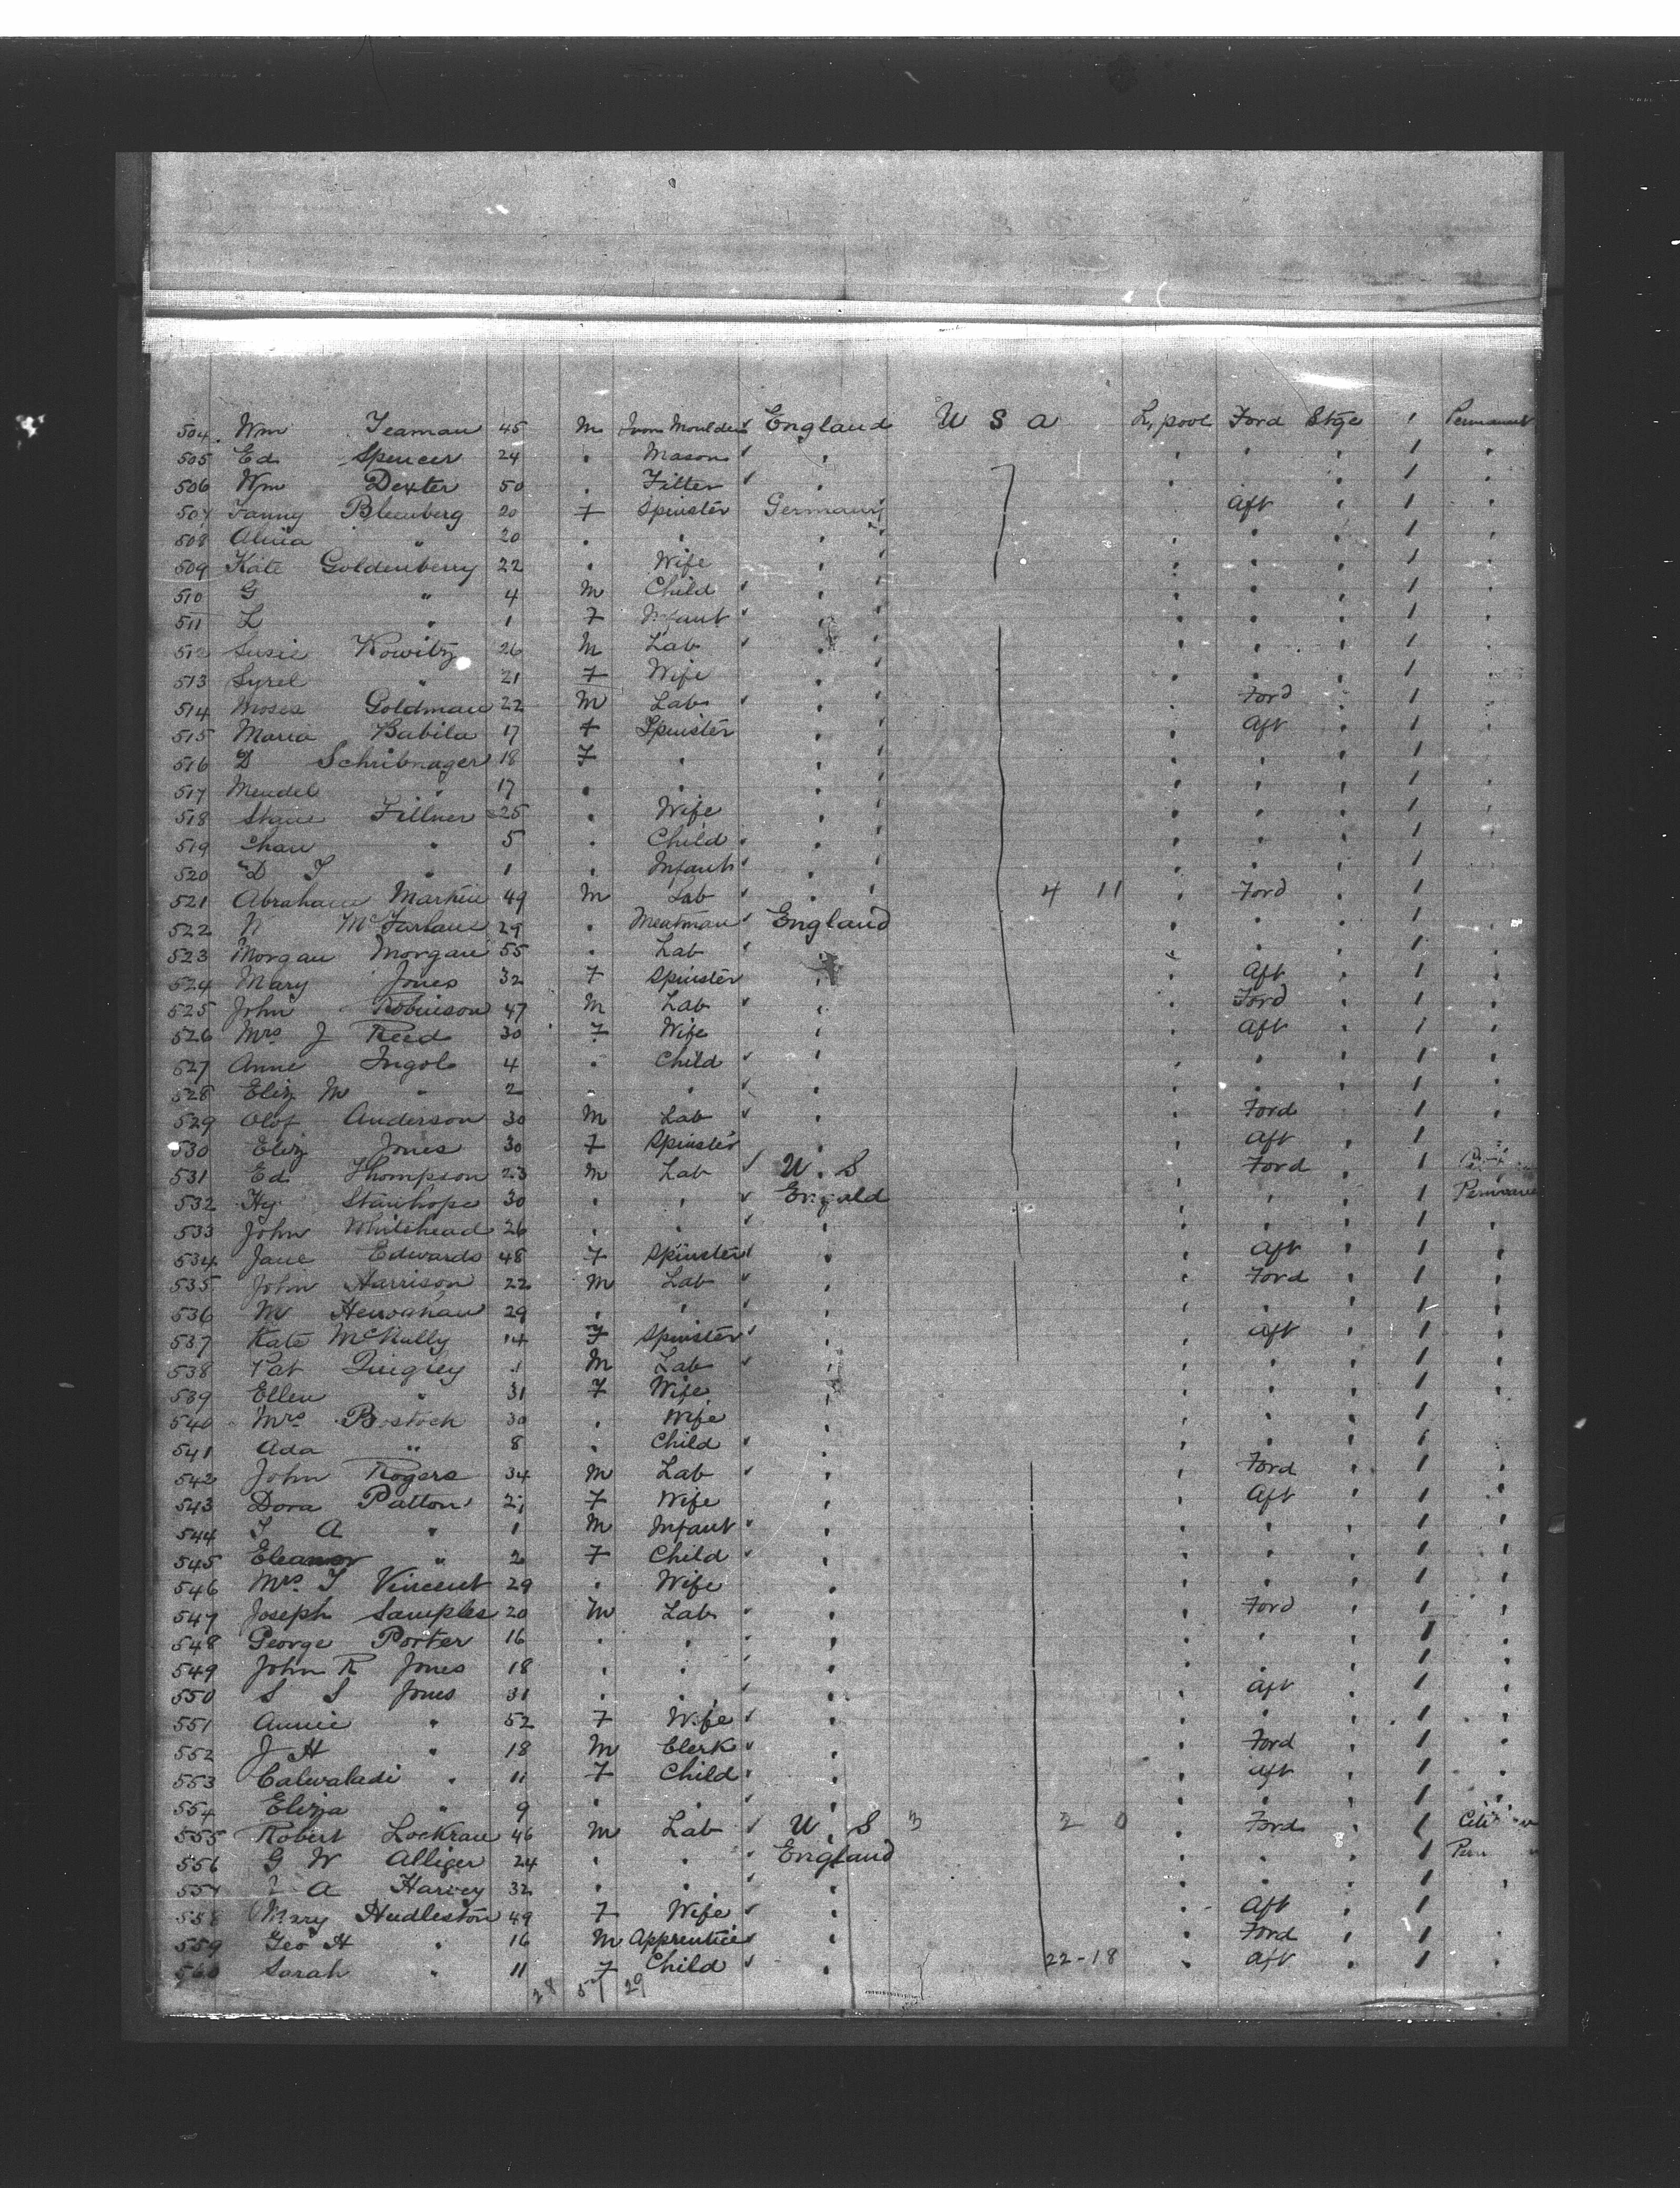 504 Wm Yeaman 45 M Iron Moulder England U S A L,pool Ford Stge 1 Permanent
505 Ed Spencer 24 " Mason " " " " 1 "
506 Wm Dexter 50 " Fitter " " " " 1 "
507 Fanny Bleenberg 20 F Spinster Germany " Aft " 1 "
508 " 20 " " " " " " 1 "
509 Kate Goldenberry 22 " Wife " " " " 1 "
510 G " 4 M Child " " " " 1 "
511 L " 1 F Infant " " " " 1 "
512 Susie Kowitz 26 M Lab " " " " 1 "
513 Syrel " 21 F Wife " " " " 1 "
514 Moses Goldman 22 M Lab " " Ford " 1 "
515 Maria Babila 17 F Spinster " " Aft " 1 "
516 D Schribnager 18 F " " " " " 1 "
517 Mendel " 17 " " " " " " 1 "
518 Fillner 25 " Wife " " " " 1 "
519 Chau " 5 " Child " " " " 1 "
520 D " 1 " Infant " " " " 1 "
521 Abraham 49 M Lab " 4 11 " Ford " 1
522 McFarlane 29 " Meatman England " " " 1 "
523 Morgan Morgan 55 " Lab " " " " 1 "
524 Mary Jones 32 F Spinster " " Aft " 1 "
525 John Robinson 47 M Lab " " Ford " 1 "
526 Mrs J Reed 30 F Wife " " Aft " 1 "
527 Anne Ingole 4 " Child " " " " 1 "
528 Eliz M " 2 " " " " " " 1 "
529 Olof Anderson 30 M Lab " " Ford " 1 "
530 Eliz Jones 30 F Spinster " " Aft " 1
531 Ed Thompson 23 M Lab U. S " Ford " 1
532 Hy Stanhope 30 " " Engald " " " 1
533 John Whitehead 26 " " " " " " 1 "
534 Jane Edwards 48 F Spinster " " Aft " 1 "
535 John Harrison 22 M Lab " " Ford " 1 "
536 M 29 " " " " " " 1 "
537 Kate McNully 14 F Spinster " " Aft " 1 "
538 Pat Quigley M Lab " " " " 1 "
539 Ellen " 31 F Wife " " " " 1 "
540 Mrs Bostock 30 " Wife " " " " 1 "
541 Ada " 8 " Child " " " " 1 "
542 John Rogers 34 M Lab " " Ford " 1 "
543 Dora Patton F Wife " " Aft " 1 "
544 A " 1 M Infant " " " " 1 "
545 Eleanor " 2 F Child " " " " 1 "
546 Mrs Vincent 29 " Wife " " " " 1 "
547 Joseph Samples 20 M Lab " " Ford " 1 "
548 George Porter 16 " " " " " " 1 "
549 John R Jones 18 " " " " " " 1 "
550 S S Jones 31 " " " " Aft " 1 "
551 Annie " 52 F Wife " " " " 1 "
552 J H " 18 M Clerk " " Ford " 1 "
553 Calwaladi " 11 F Child " " Aft " 1 "
554 Eliza " 9 " " " " " " 1 "
555 Robert Lockrau 46 M Lab U. S 3 2 0 " Ford " 1
556 G W Alliger 24 " " England " " " 1
557 A Harvey 32 " " " " " " 1 "
558 Mary Hudleston 49 F Wife " " Aft " 1 "
559 Geo H " 16 M Apprentice " " Ford " 1 "
560 Sarah " 11 F Child " 22-18 " Aft " 1 "
28 57 29